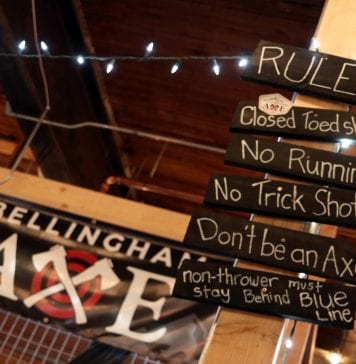 RULE
AXE
Closed Toed sh
No Runnin
No Trick Shot
Don't be an Axe
non-thrower must
stay Behind Blue
Line
BELLINGHAM
AXE